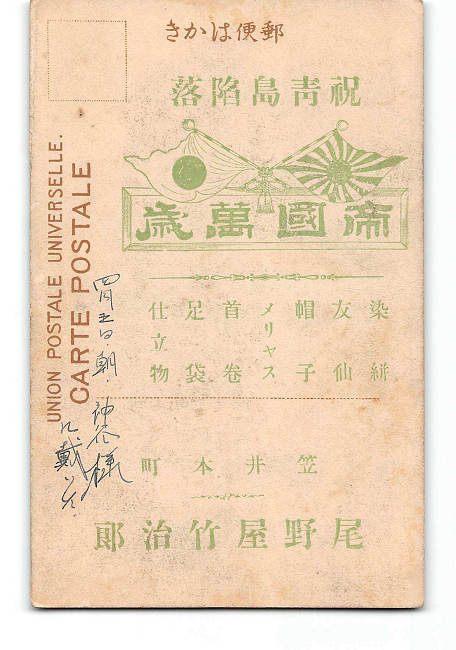 郵便はかき
祝青島陥落
帝國萬歳
染絣
友仙
帽子
メリヤス
首巻
足袋
仕立物
笠井本町
尾野屋竹治郎
UNION POSTALE UNIVERSELLE.
CARTE POSTALE
朝 神谷様
戴